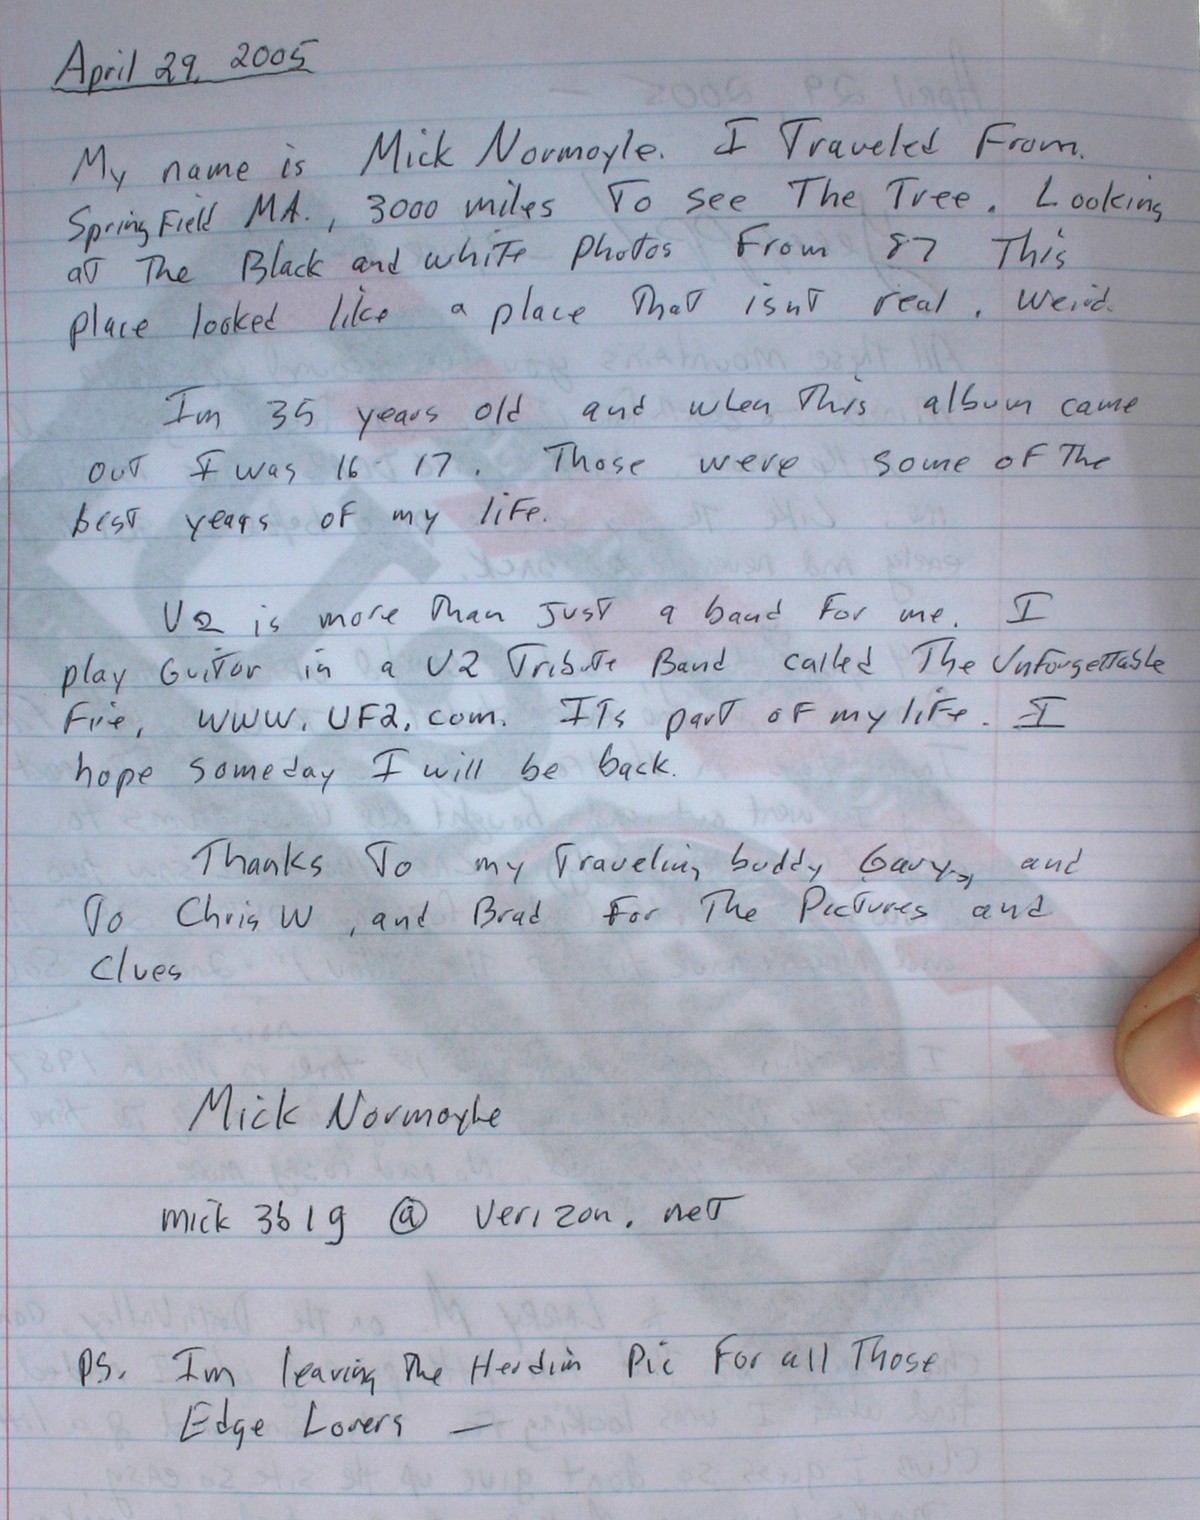 April 29, 2005
My name is Mick Normoyle. I Traveled From.
Springfield MA., 3000 miles To see The Tree. Looking
at The Black and white photos From 87 This
place looked like a place That isnt real, weird.
Im 35 years old and when This album came
out I was 16-17. Those were some of The
best years of my life.
U2 is more Than Just a band For me. I
play Guitar in a U2 Tribute Band called The Unforgettable
Fire, WWW.UF2.com. ITs part of my life. I
hope someday I will be back.
Thanks To my Traveling buddy Gary, and
To Chris W, and Brad For The Pictures and
Clues
Mick Normoyle
mick3619@verizon.net
PS. Im leaving The Herdim Pic For all Those
Edge Lovers —